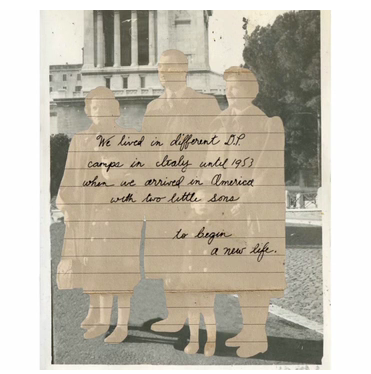 We lived in different D.P.
camps in Italy until 1953
when we arrived in America
with two little sons
to begin
a new life.